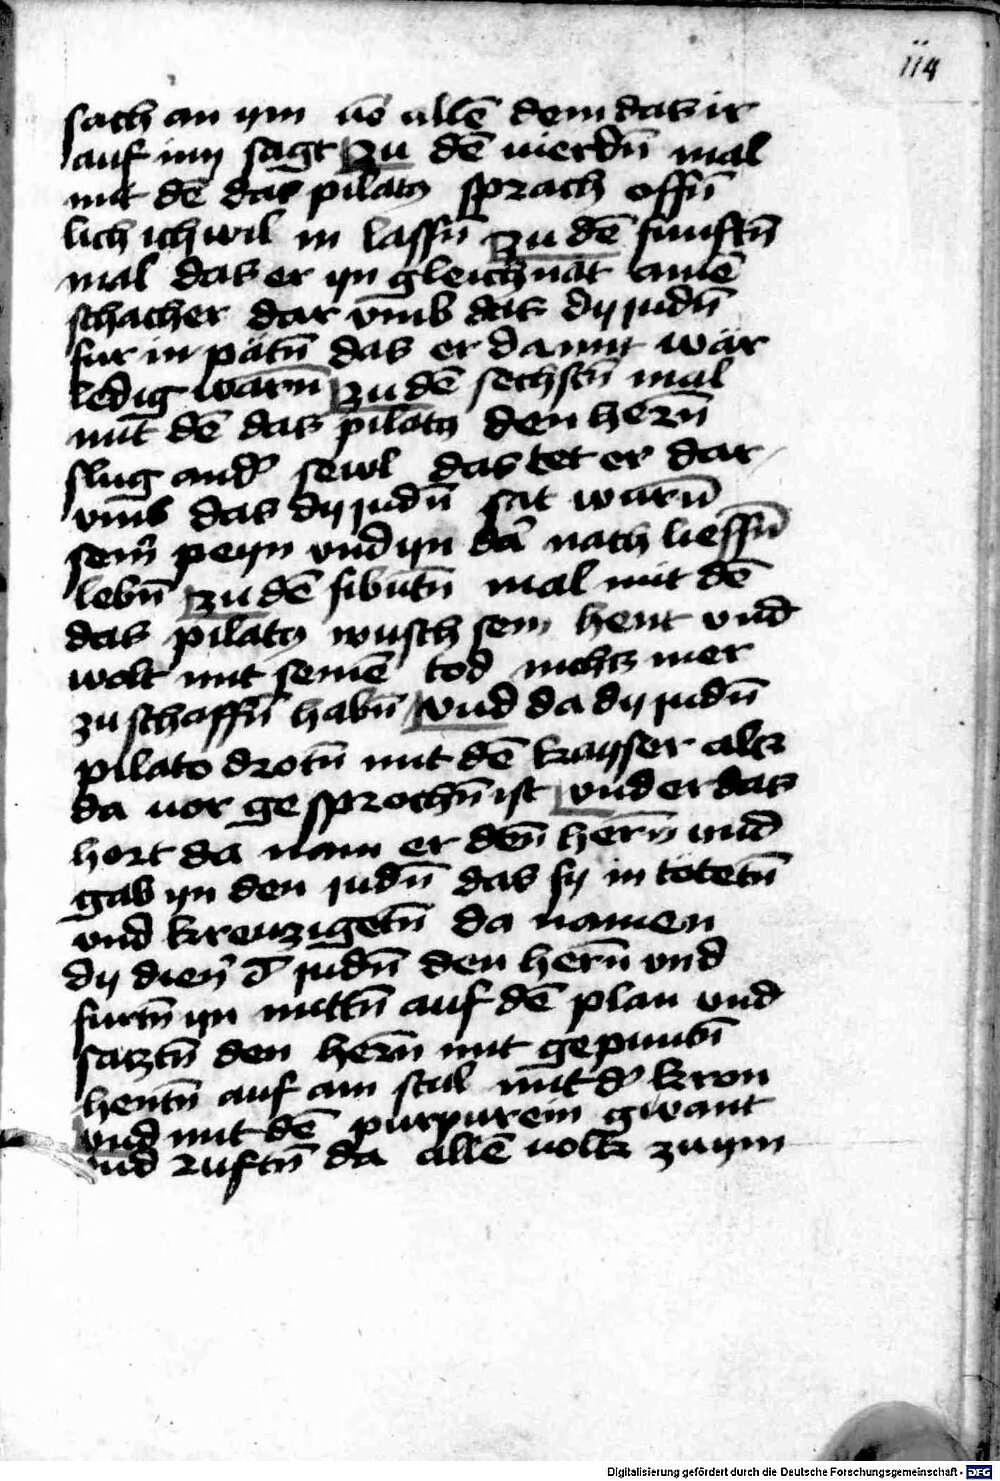 114
sach an ym vō allē dem das ir
auf inn sagt Zu dē vierdn̄ mal
mit dē das pilatꝫ sprach offn̄
lich ich wil in lassn̄ Zu dē funftn̄
mal das er yn gleichnāt ainē
schacher dar vmb das dy judn̄
fur in pätn̄ das er damit wär
ledig warn̄ Zu dē sechstn̄ mal
mit dē das pilatꝫ den hern̄
slug an d' sewl das tet er dar
vmb das dy judn̄ sat warn̄
sein' peyn vnd yn da' nach liessn̄
lebn̄ Zu dē sibntn̄ mal mit dē
das pilatꝫ wusch sein hent vnd
wolt mit seinē tod nichtz mer
zu schaffn̄ habn̄ Vnd da dy judn̄
pilato drotn̄ mit dē kayser als
da vor gesprochn̄ ist vnd er das
hort da nam er den̄ hern̄ vnd
gab yn den judn̄ das sy in tötetn̄
vnd kreuzigetn̄ da namen
dy dien' d' judn̄ den hern̄ vnd
furtn̄ yn mittn̄ auf dē plan vnd
satztn̄ den hern̄ mit gepuntn̄
hentn̄ auf ain stul mit d' kron
vnd mit dē purpurein gwant
vnd ruftn̄ da allē volk zu ym
Digitalisierung gefördert durch die Deutsche Forschungsgemeinschaft - DFG